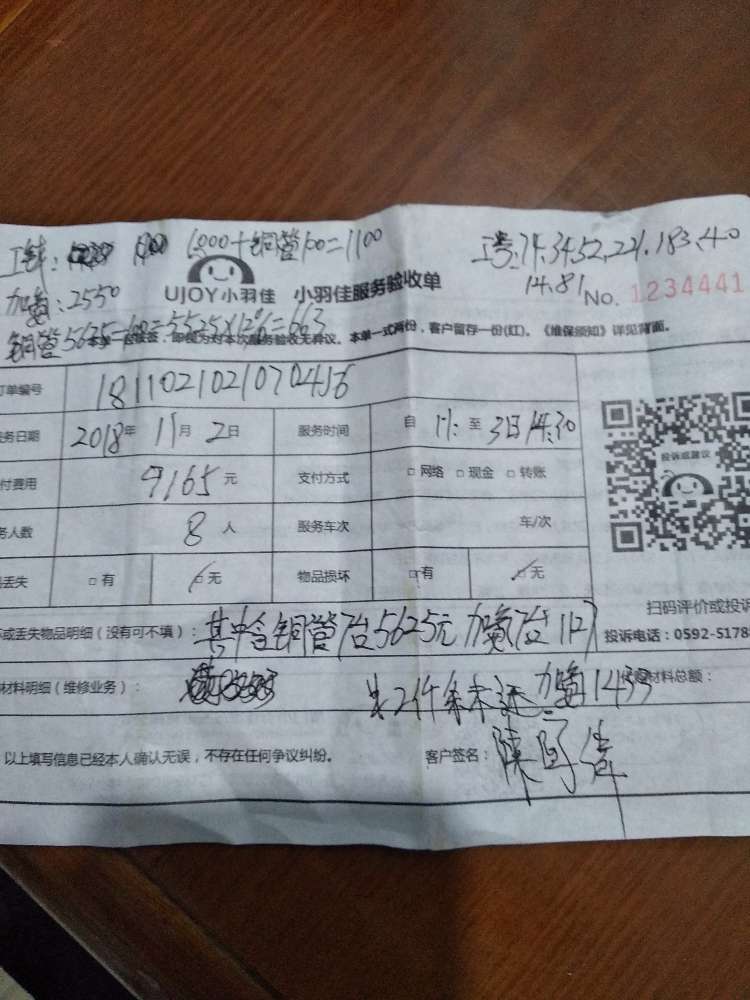 1000+铜管100=1100
加氨:2550
14.81
UJOY小羽佳 小羽佳服务验收单
No. 1234441
铜管5625-100=5525×12%=663
本单一式两份,客户留存一份(红)。《维保须知》详见背面。
单编号 1811021021070456
务日期 2018年 11月 2日 服务时间 自 至 3日14:30
付费用 9165元 支付方式 □网络 □现金 □转账
务人数 8人 服务车次 车/次
丢失 □有 □无 物品损坏 □有 □无
投诉或建议
扫码评价或投诉
投诉电话:0592-5178
或丢失物品明细(没有可不填): 其中含铜管7台5625元
材料明细(维修业务): 1433 材料总额:
以上填写信息已经本人确认无误,不存在任何争议纠纷。 客户签名: